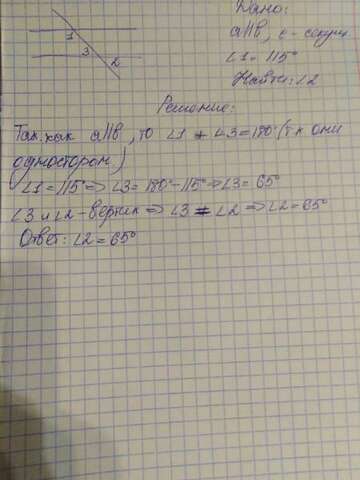 Дано:
a||b, c - секущ.
∠1 = 115°
Найти: ∠2
1
3
2
Решение:
Так как a||b, то ∠1 + ∠3 = 180° (т к они
односторон.)
∠1 = 115° => ∠3 = 180° - 115° => ∠3 = 65°
∠3 и ∠2 - вертик => ∠3 = ∠2 => ∠2 = 65°
Ответ: ∠2 = 65°